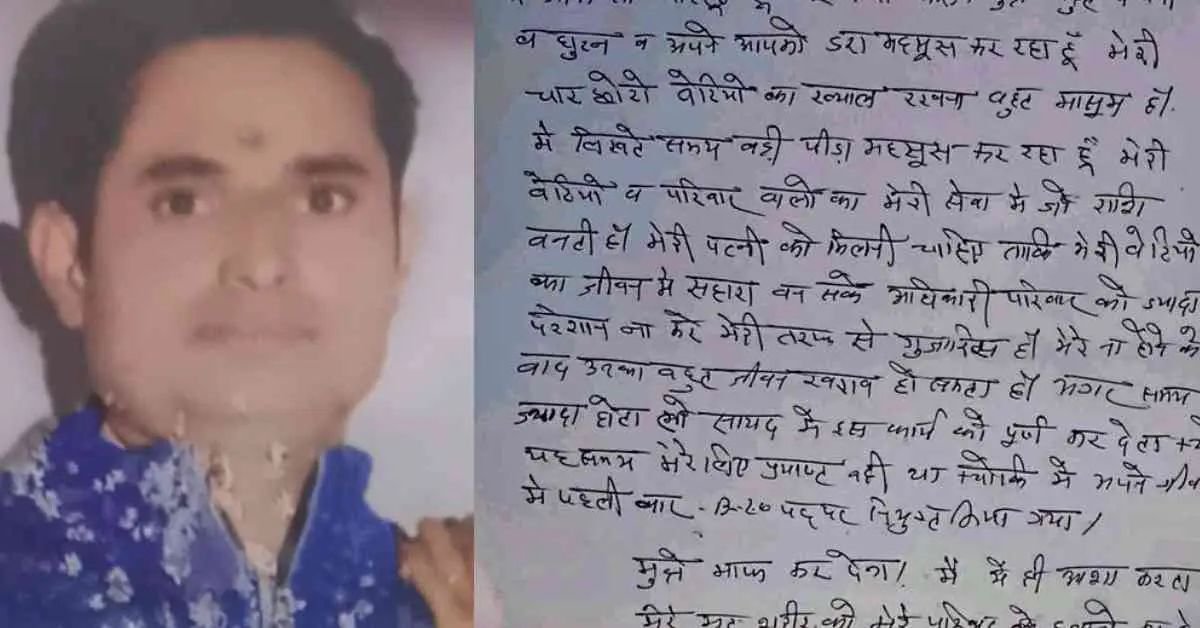 व घुटन व अपने आपको डरा महसूस कर रहा हूँ मेरी
चार छोटी बेटियों का ख्याल रखना बहुत मासूम हों.
मे लिखते समय बडी पीडा महसूस कर रहा हूँ मेरी
बेटियो व परिवार वालो का मेरी सेवा मे जो राशी
बनती हों मेरी पत्नी को मिलनी चाहिए ताकि मेरी बेटियो
का जीवन मे सहारा बन सके अधिकारी परिवार को ज्यादा
परेशान ना करे मेरी तरफ से गुजारिस हों मेरे ना होने के
बाद उनका बहुत जीवन खराब हो सकता हों अगर समय
ज्यादा होता तो सायद मे इस कार्य को पूर्ण कर देता
यह समय मेरे लिए नही था क्योकी मे अपने
मे पहली बार पद पर नियुक्त किया गया /
मुझे माफ कर देना / मै करता
मेरे शरीर को मेरे परिवार